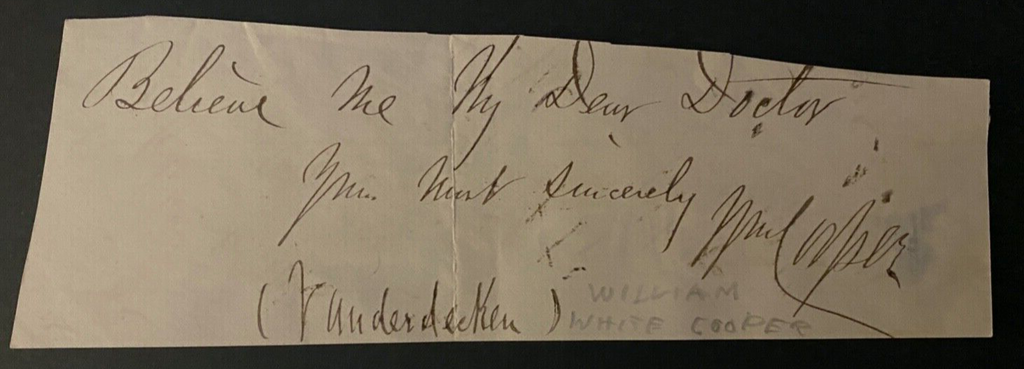 Believe Me My Dear Doctor
Your Most Sincerely Wm Cooper
(Vanderdecken)
WILLIAM
WHITE COOPER